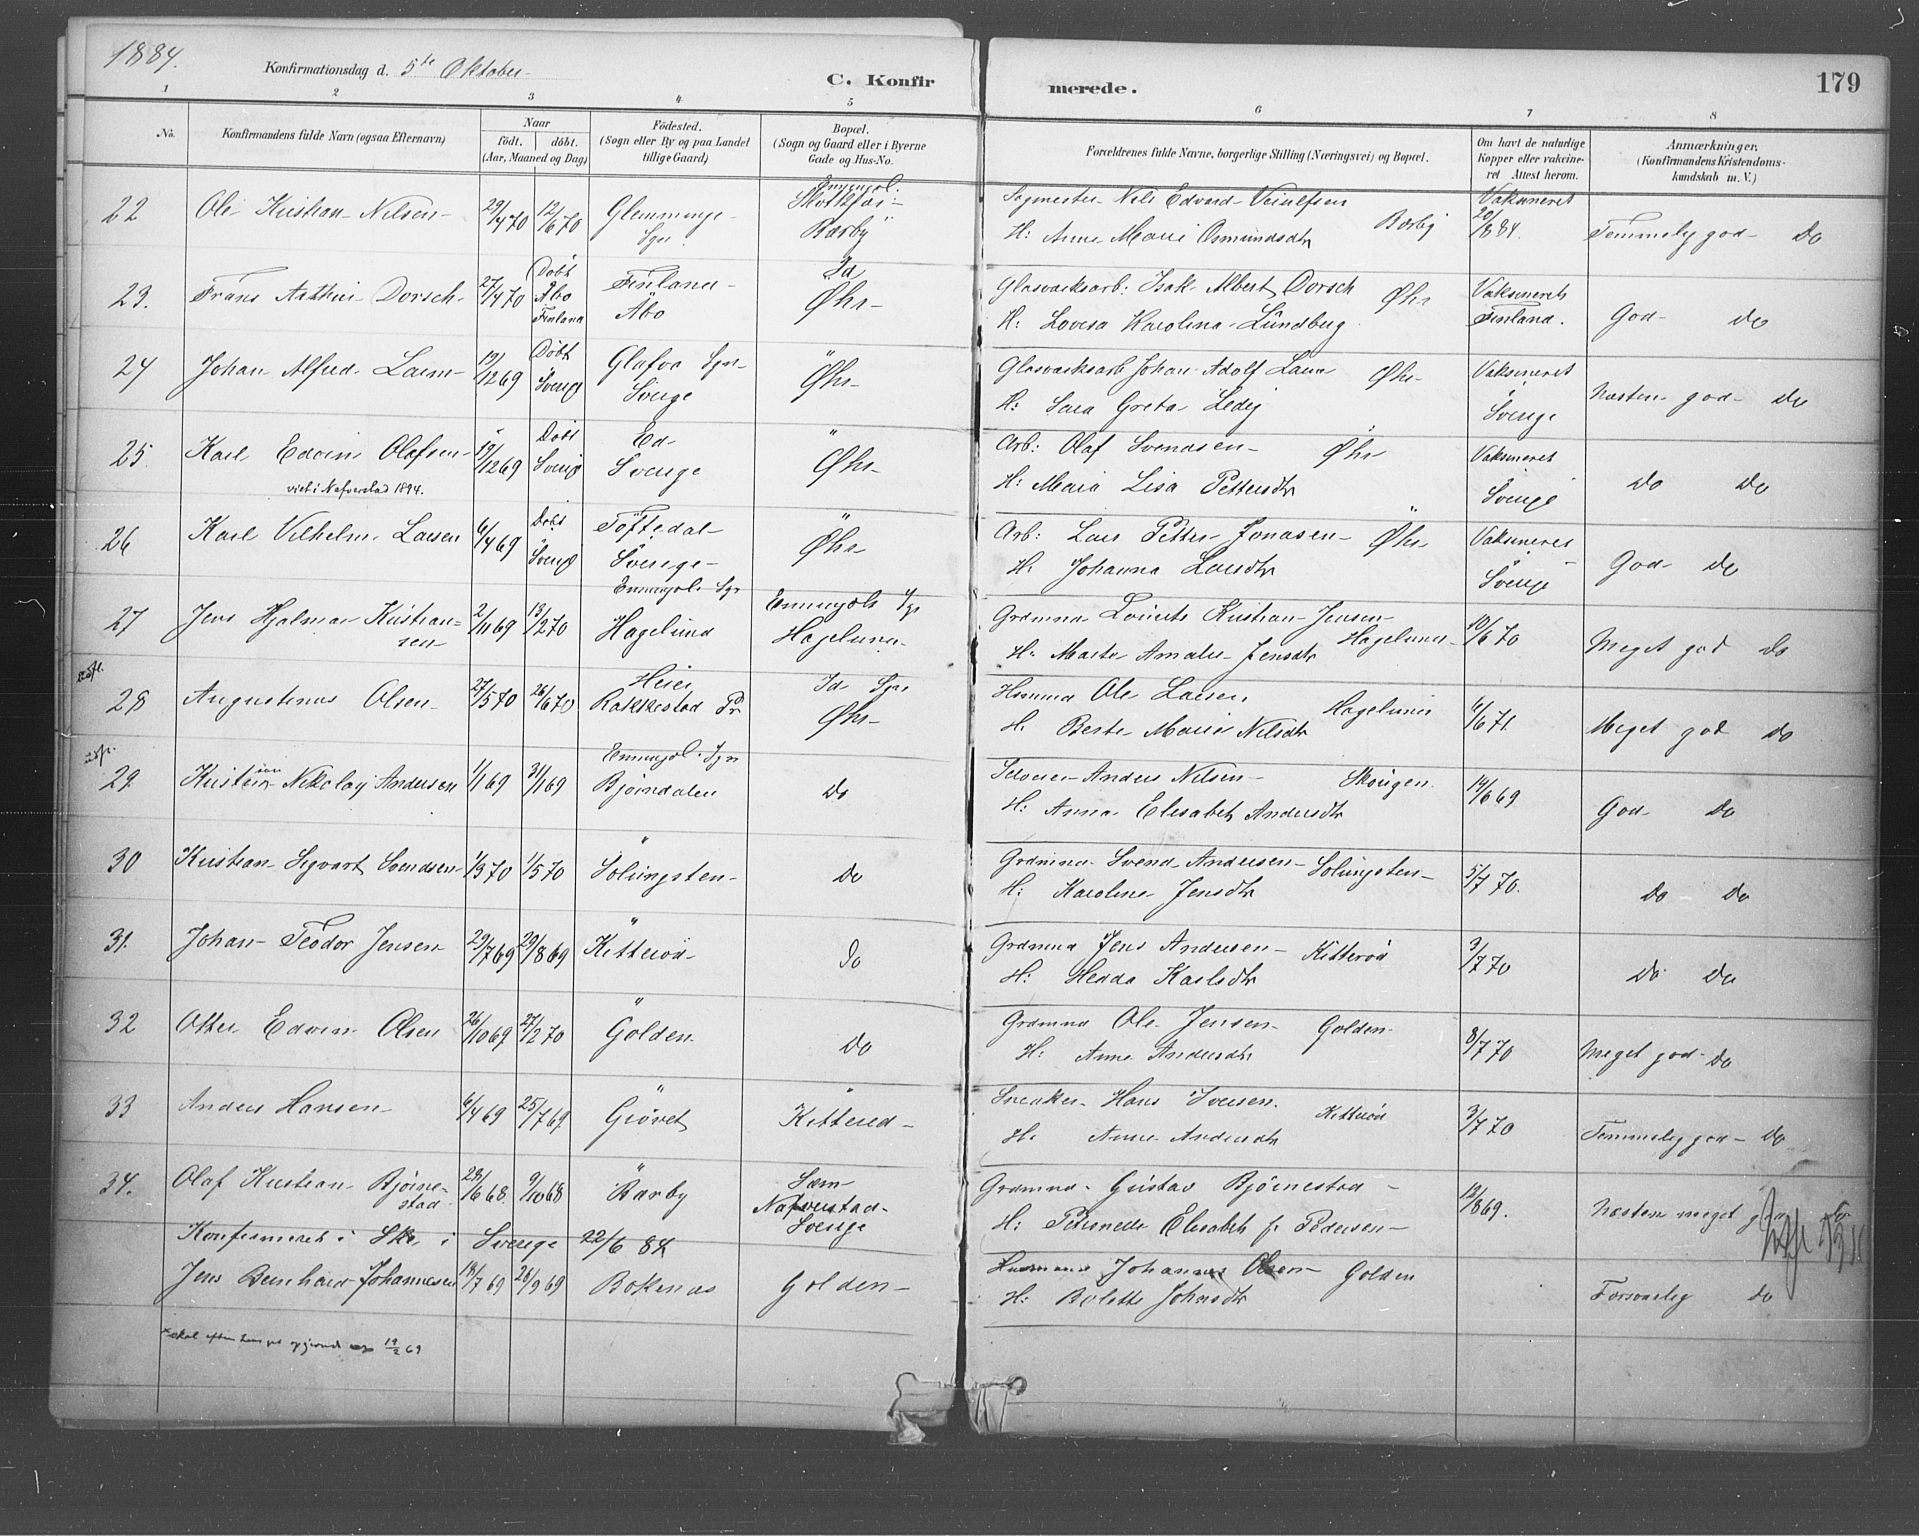 1884.
Konfirmationsdag d. 5te Oktober
C. Konfirmerede.
179
1 2 3 4 5 6 7 8
No.
Konfirmandens fulde Navn (ogsaa Efternavn)
Naar
födt. döbt.
(Aar, Maaned og Dag)
Födested.
(Sogn eller By og paa Landet
tillige Gaard)
Bopæl.
(Sogn og Gaard eller i Byerne
Gade og Hus-No.
Forældrenes fulde Navne, borgerlige Stilling (Næringsvei) og Bopæl.
Om havt de naturlige
Kopper eller vakcine-
ret Attest herom.
Anmærkninger.
(Konfirmandens Kristendoms-
kundskab m. V.)
22 Ole Kristian Nilsen 29/4 70 12/6 70 Glemminge Sgn Enningdal. Bærby
Nils Edvard Bærby Vaksineret 20/ 1884. Temmelig god Do
H: Anne Marie Osmundsdtr
23. Frans Arthur Dorsch 27/4 70 Döbt Åbo Finland Finland Åbo Id Øhr
Glasværksarb: Isak Albert Dorsch Øhr Vaksineret Finland. God Do
H: Lovisa Karolina Lundberg
24 Johan Alfred Laem 19/12 69 Döbt Sverige Glafva Sgn Sverige " Øhr
Glasværksarb Johan Adolf Øhr Vaksineret i Sverige Næsten god Do
H: Sara Greta
25. Karl Edvin Olafsen 19/12 69 Döbt Sverige Ed Sverige " Øhr
viet i Nafverstad 1894.
Arb: Olaf Svendsen Øhr Vaksineret i Sverige Do Do
H: Maria Lisa Pettersdtr
26 Karl Vilhelm Larsen 6/4 69 Döbt Sverige Töftedal Sverige " Øhr
Arb: Lars Petter Jonasen Øhr Vaksineret i Sverige God Do
H. Johanna Larsdtr
27 Jens Hjalmar Kristiansen 2/11 69 13/2 70 Enningdals Sgn Hagelund Enningdals Sgn Hagelund
Grdmnd Kristian Jensen Hagelund 10/6 70 Meget god Do
H: Marte Amalie Jensdtr
28 Augustinus Olsen 27/5 70 26/6 70 Heier Rakkestad Pr Id Sgn Øhr
Husmnd Ole Larsen Hagelund 6/6 71 Meget god Do
H. Berte Marie Nilsdtr
29 Kristian Nikolay Andersen 1/1 69 31/1 69 Enningdal Sgn Bjørndalen Do
Selveier Anders Nilsen Skougen 14/6 69 God Do
H: Anna Elisabet Andersdtr
30 Kristian Sigvart Svendsen 1/3 70 1/5 70 " Solungsten Do
Grdmnd Svend Andersen Solungsten 5/7 70. Do Do
H: Karoline Jensdtr
31. Johan Teodor Jensen 29/7 69 29/8 69 " Kitterød Do
Grdmnd Jens Andersen Kitterød 3/7 70 Do Do
H. Hedda Karlsdtr
32 Otter Edvin Olsen 26/10 69 27/2 70 " Golden Do
Grdmnd Ole Jensen Golden 8/7 70 Meget god Do
H: Anne Andersdtr
33 Anders Hansen 6/4 69 25/7 69 " Grövet " Kitterød
Snedker Hans Iversen. Kitterød 3/7 70 Temmelig god Do
H. Anne Andersdtr
34. Olaf Kristian Bjørnestad 28/6 68 9/10 68 " Bærby Nafverstad Sverige
Grdmnd Gustav Bjørnestad 12/8 69. Næsten meget
H: Petronelle Elisabet f. Pedersen
Konfirmeret i i Sverige 22/6 84
Jens Bernhard Johannesen 18/7 69 26/9 69 Bokenæs Golden
Husmand Johannes Olsen Golden Forsvarlig Do
H: Bolette Johnsdtr
19/2 69